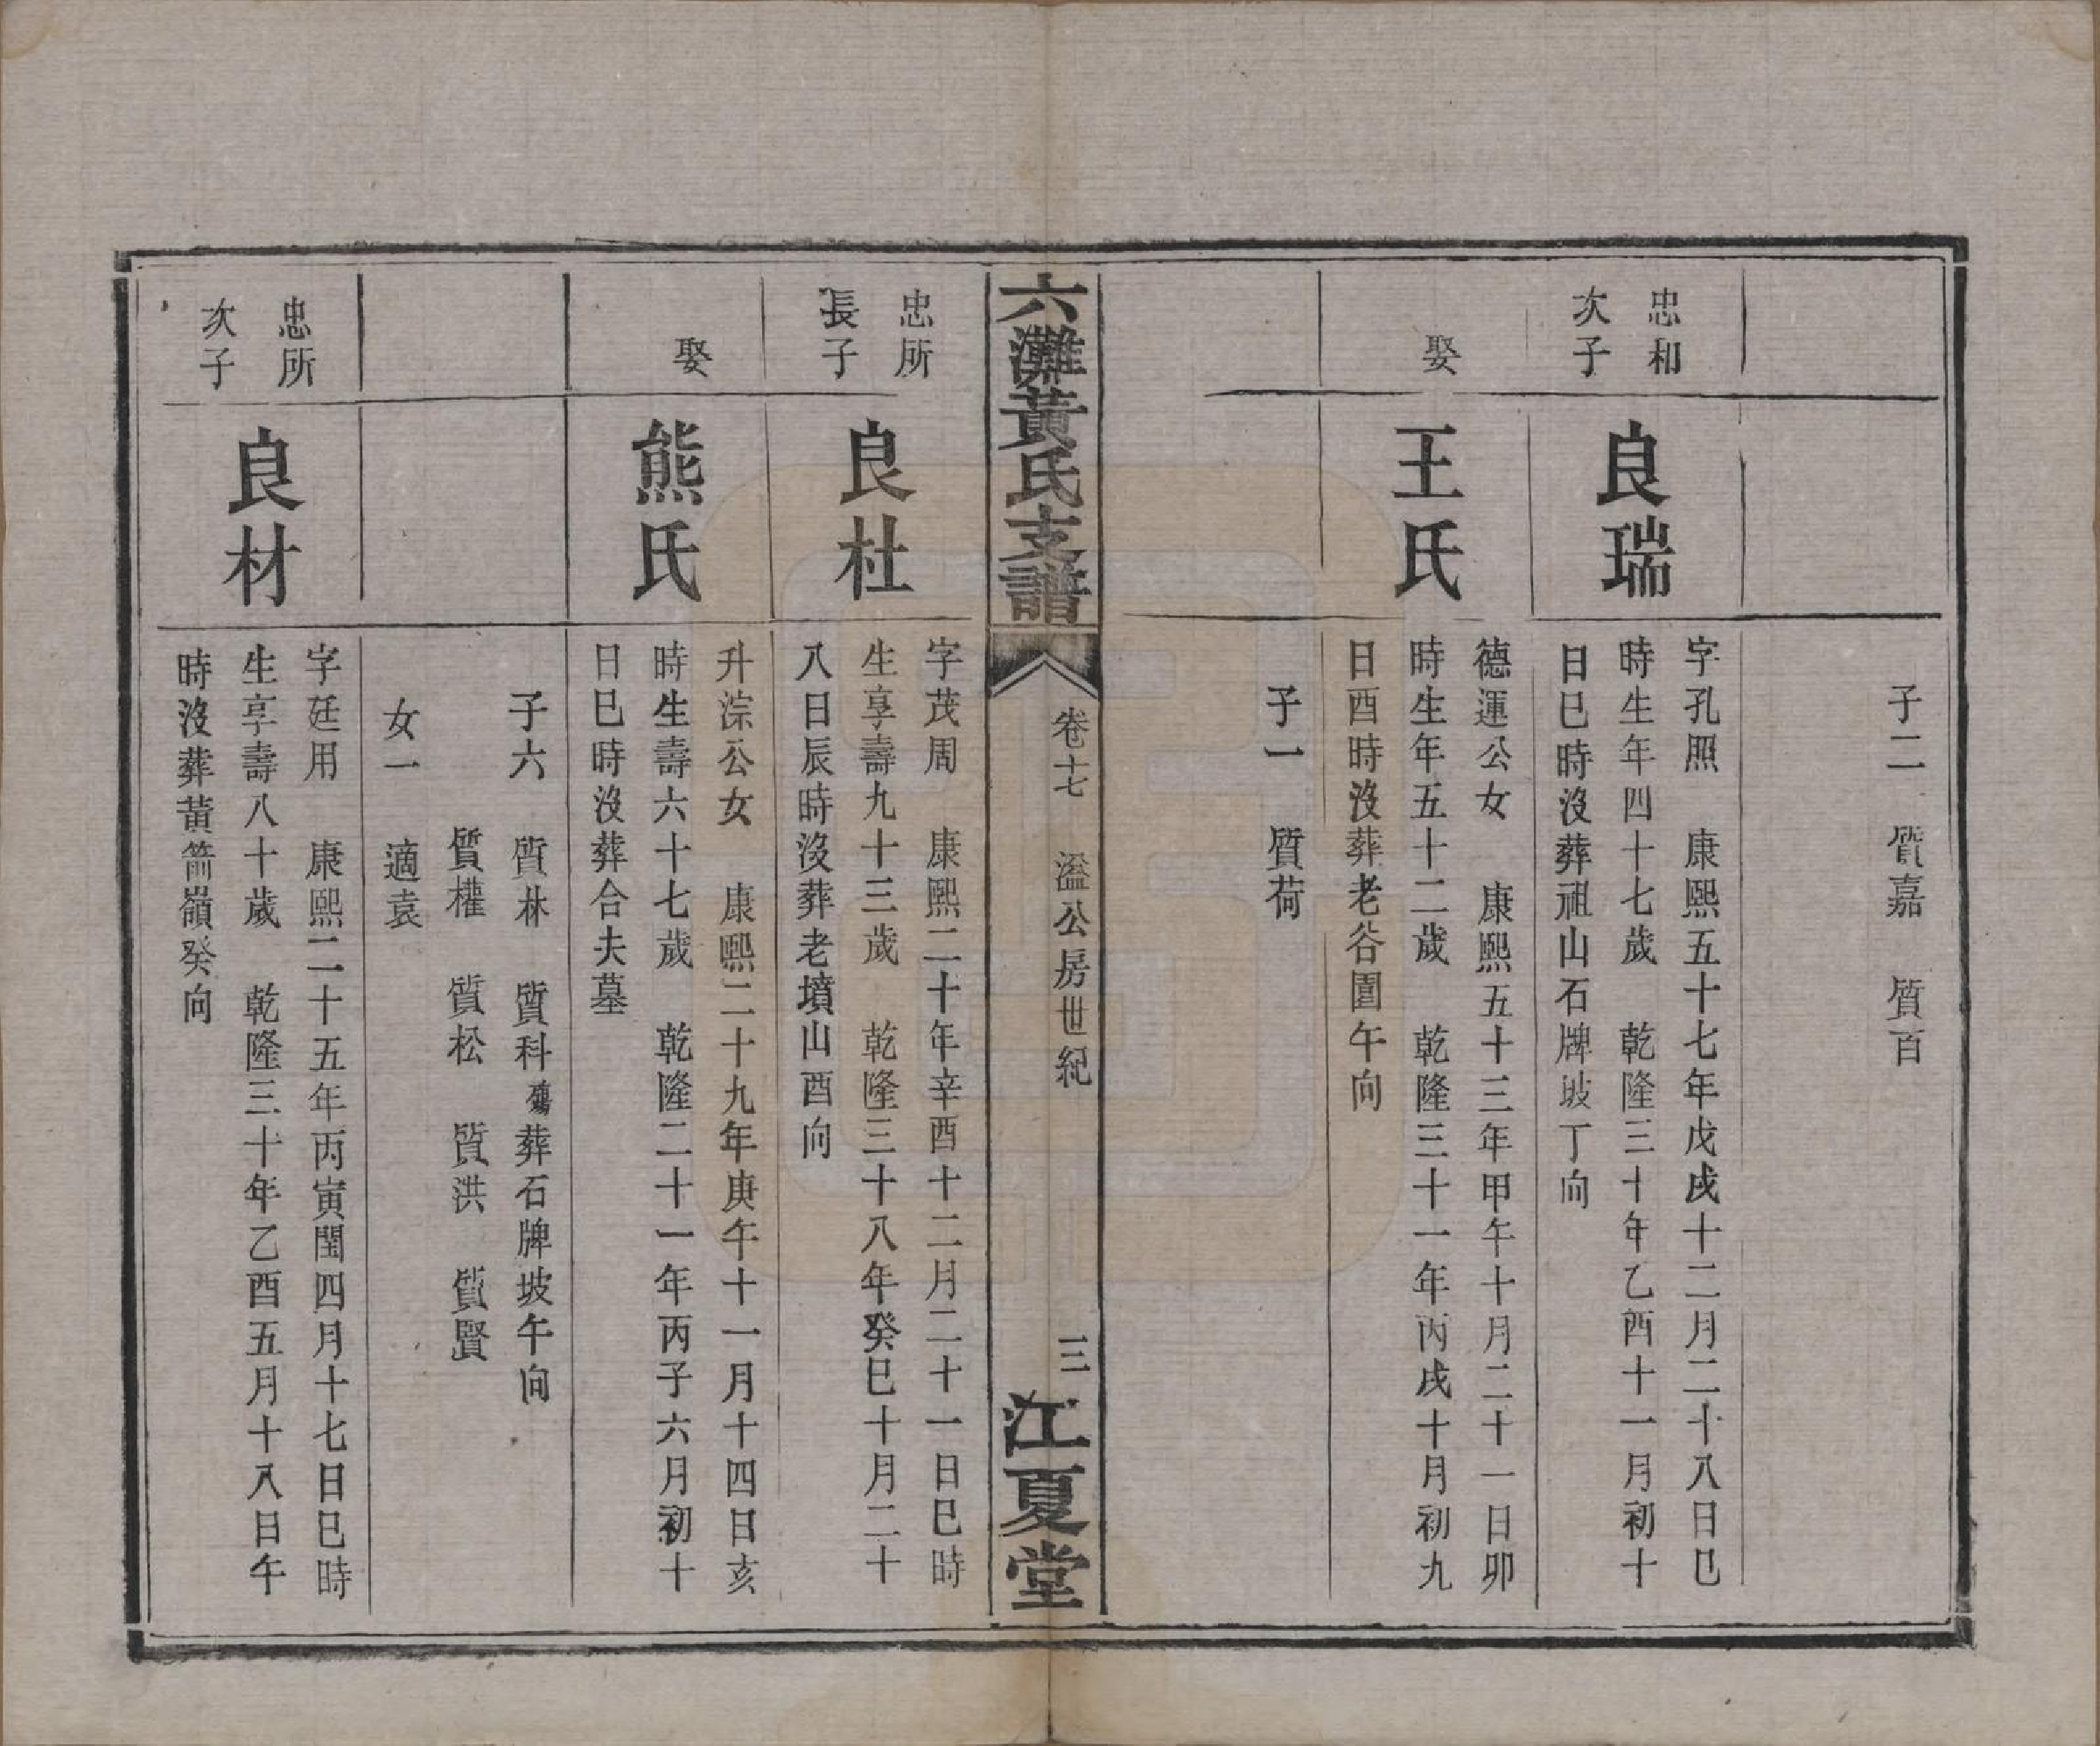 子二　質嘉　質百
忠和
次子
良瑞
字孔照　康熙五十七年戊戌十二月二十八日巳
時生年四十七歲　乾隆三十年乙酉十一月初十
日巳時沒葬祖山石牌坡丁向
娶
王氏
德運公女　康熙五十三年甲午十月二十一日卯
時生年五十二歲　乾隆三十一年丙戌十月初九
日酉時沒葬老谷園午向
子一　質荷
六灘黃氏支譜
卷十七　溢公房世紀
三
江夏堂
忠所
長子
良杜
字茂周　康熙二十年辛酉十二月二十一日巳時
生享壽九十三歲　乾隆三十八年癸巳十月二十
八日辰時沒葬老墳山酉向
娶
熊氏
升淙公女　康熙二十九年庚午十一月十四日亥
時生壽六十七歲　乾隆二十一年丙子六月初十
日巳時沒葬合夫墓
子六　質林　質科殤葬石牌坡午向
質權　質松　質洪　質賢
女一　適袁
忠所
次子
良材
字廷用　康熙二十五年丙寅閏四月十七日巳時
生享壽八十歲　乾隆三十年乙酉五月十八日午
時沒葬黃箭嶺癸向